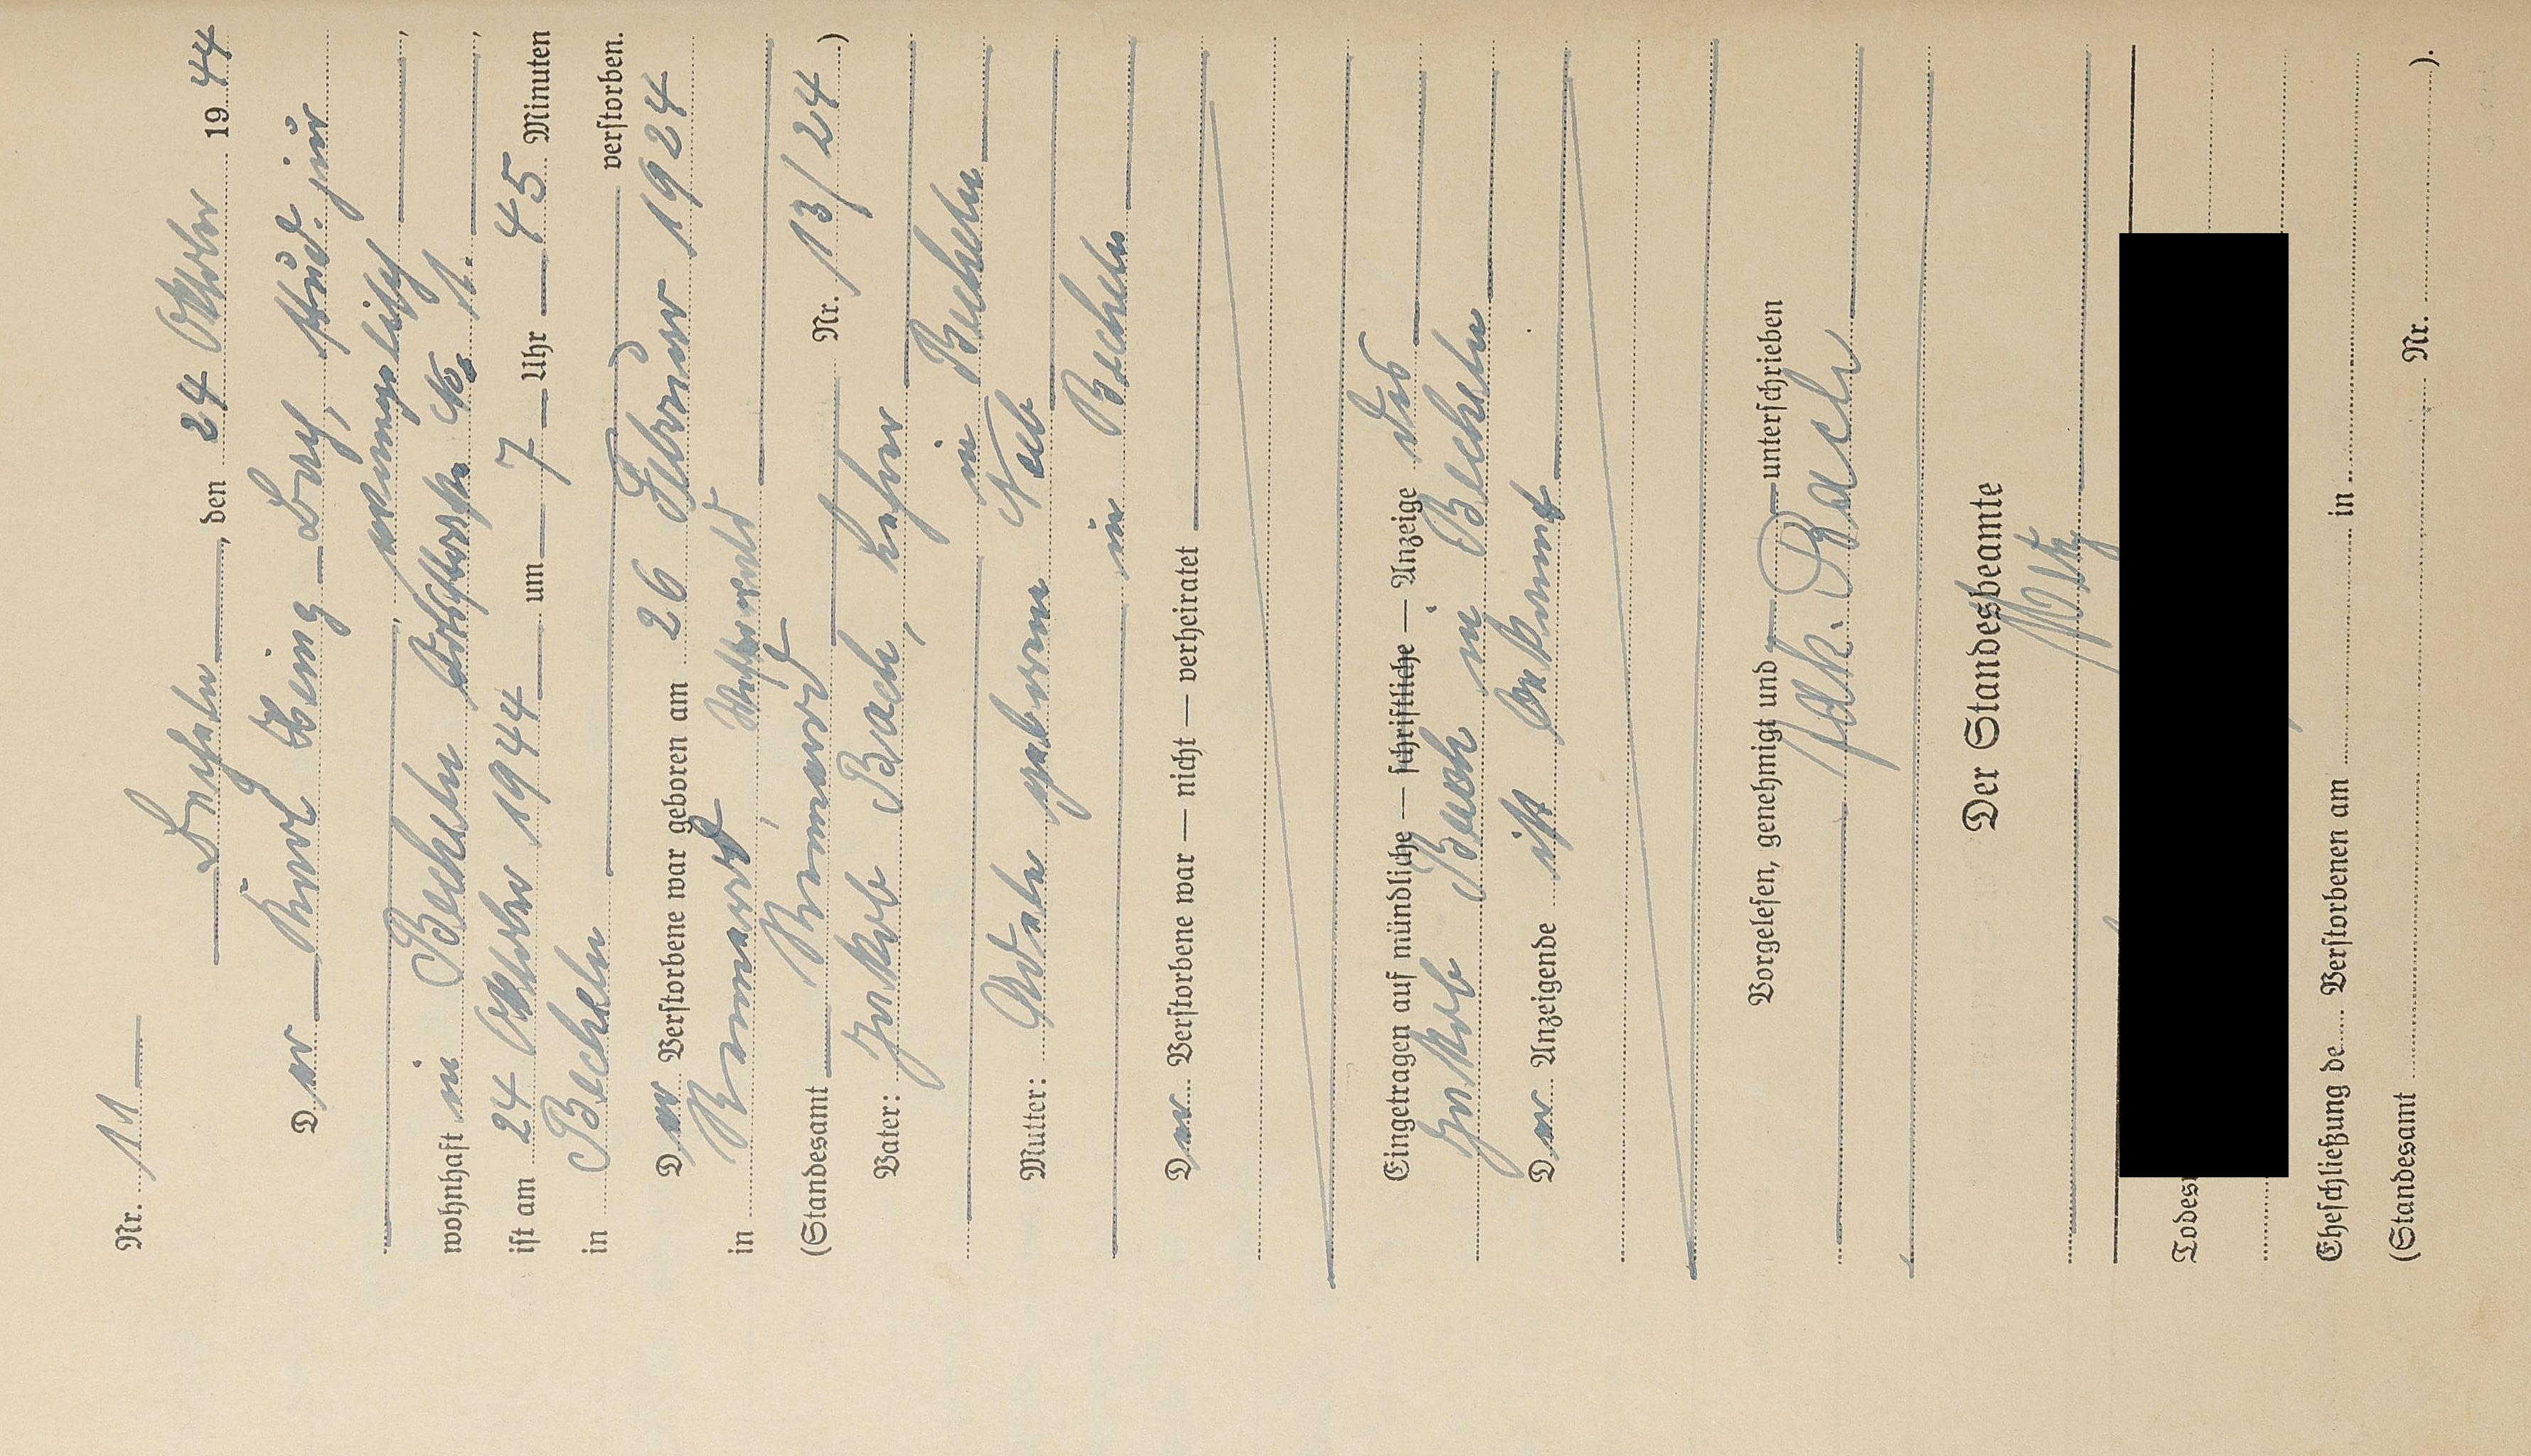 Nr. 11
Becheln, den 24 Oktober 1944
Der Kurt Heinz Bach, stud. jur
evangelisch,
wohnhaft in Becheln No. 1.,
ist am 24 Oktober 1944 um 7 Uhr 45 Minuten
in Becheln verstorben.
Der Verstorbene war geboren am 26 Februar 1924
in Rennerod, Westerwald
(Standesamt Rennerod Nr. 13/24)
Vater: Jakob Bach, Lehrer
in Becheln
Mutter: Adele geborene Neeb
in Becheln
Der Verstorbene war — nicht — verheiratet
Eingetragen auf mündliche — schriftliche — Anzeige des
Jakob Bach in Becheln
Der Anzeigende ist bekannt
Vorgelesen, genehmigt und unterschrieben
Jak. Bach
Der Standesbeamte
Todes
Eheschließung de Verstorbenen am in
(Standesamt Nr. ).